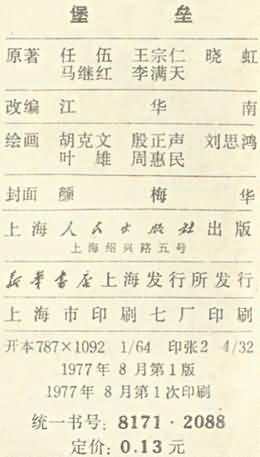 堡垒
原著 任伍 王宗仁 晓虹
马继红 李满天
改编 江华南
绘画 胡克文 殷正声 刘思鸿
叶雄 周惠民
封面 颜梅华
上海人民出版社出版
上海绍兴路五号
新华书店上海发行所发行
上海市印刷七厂印刷
开本787×1092 1/64 印张2 4/32
1977年8月第1版
1977年8月第1次印刷
统一书号：8171·2088
定价：0.13元